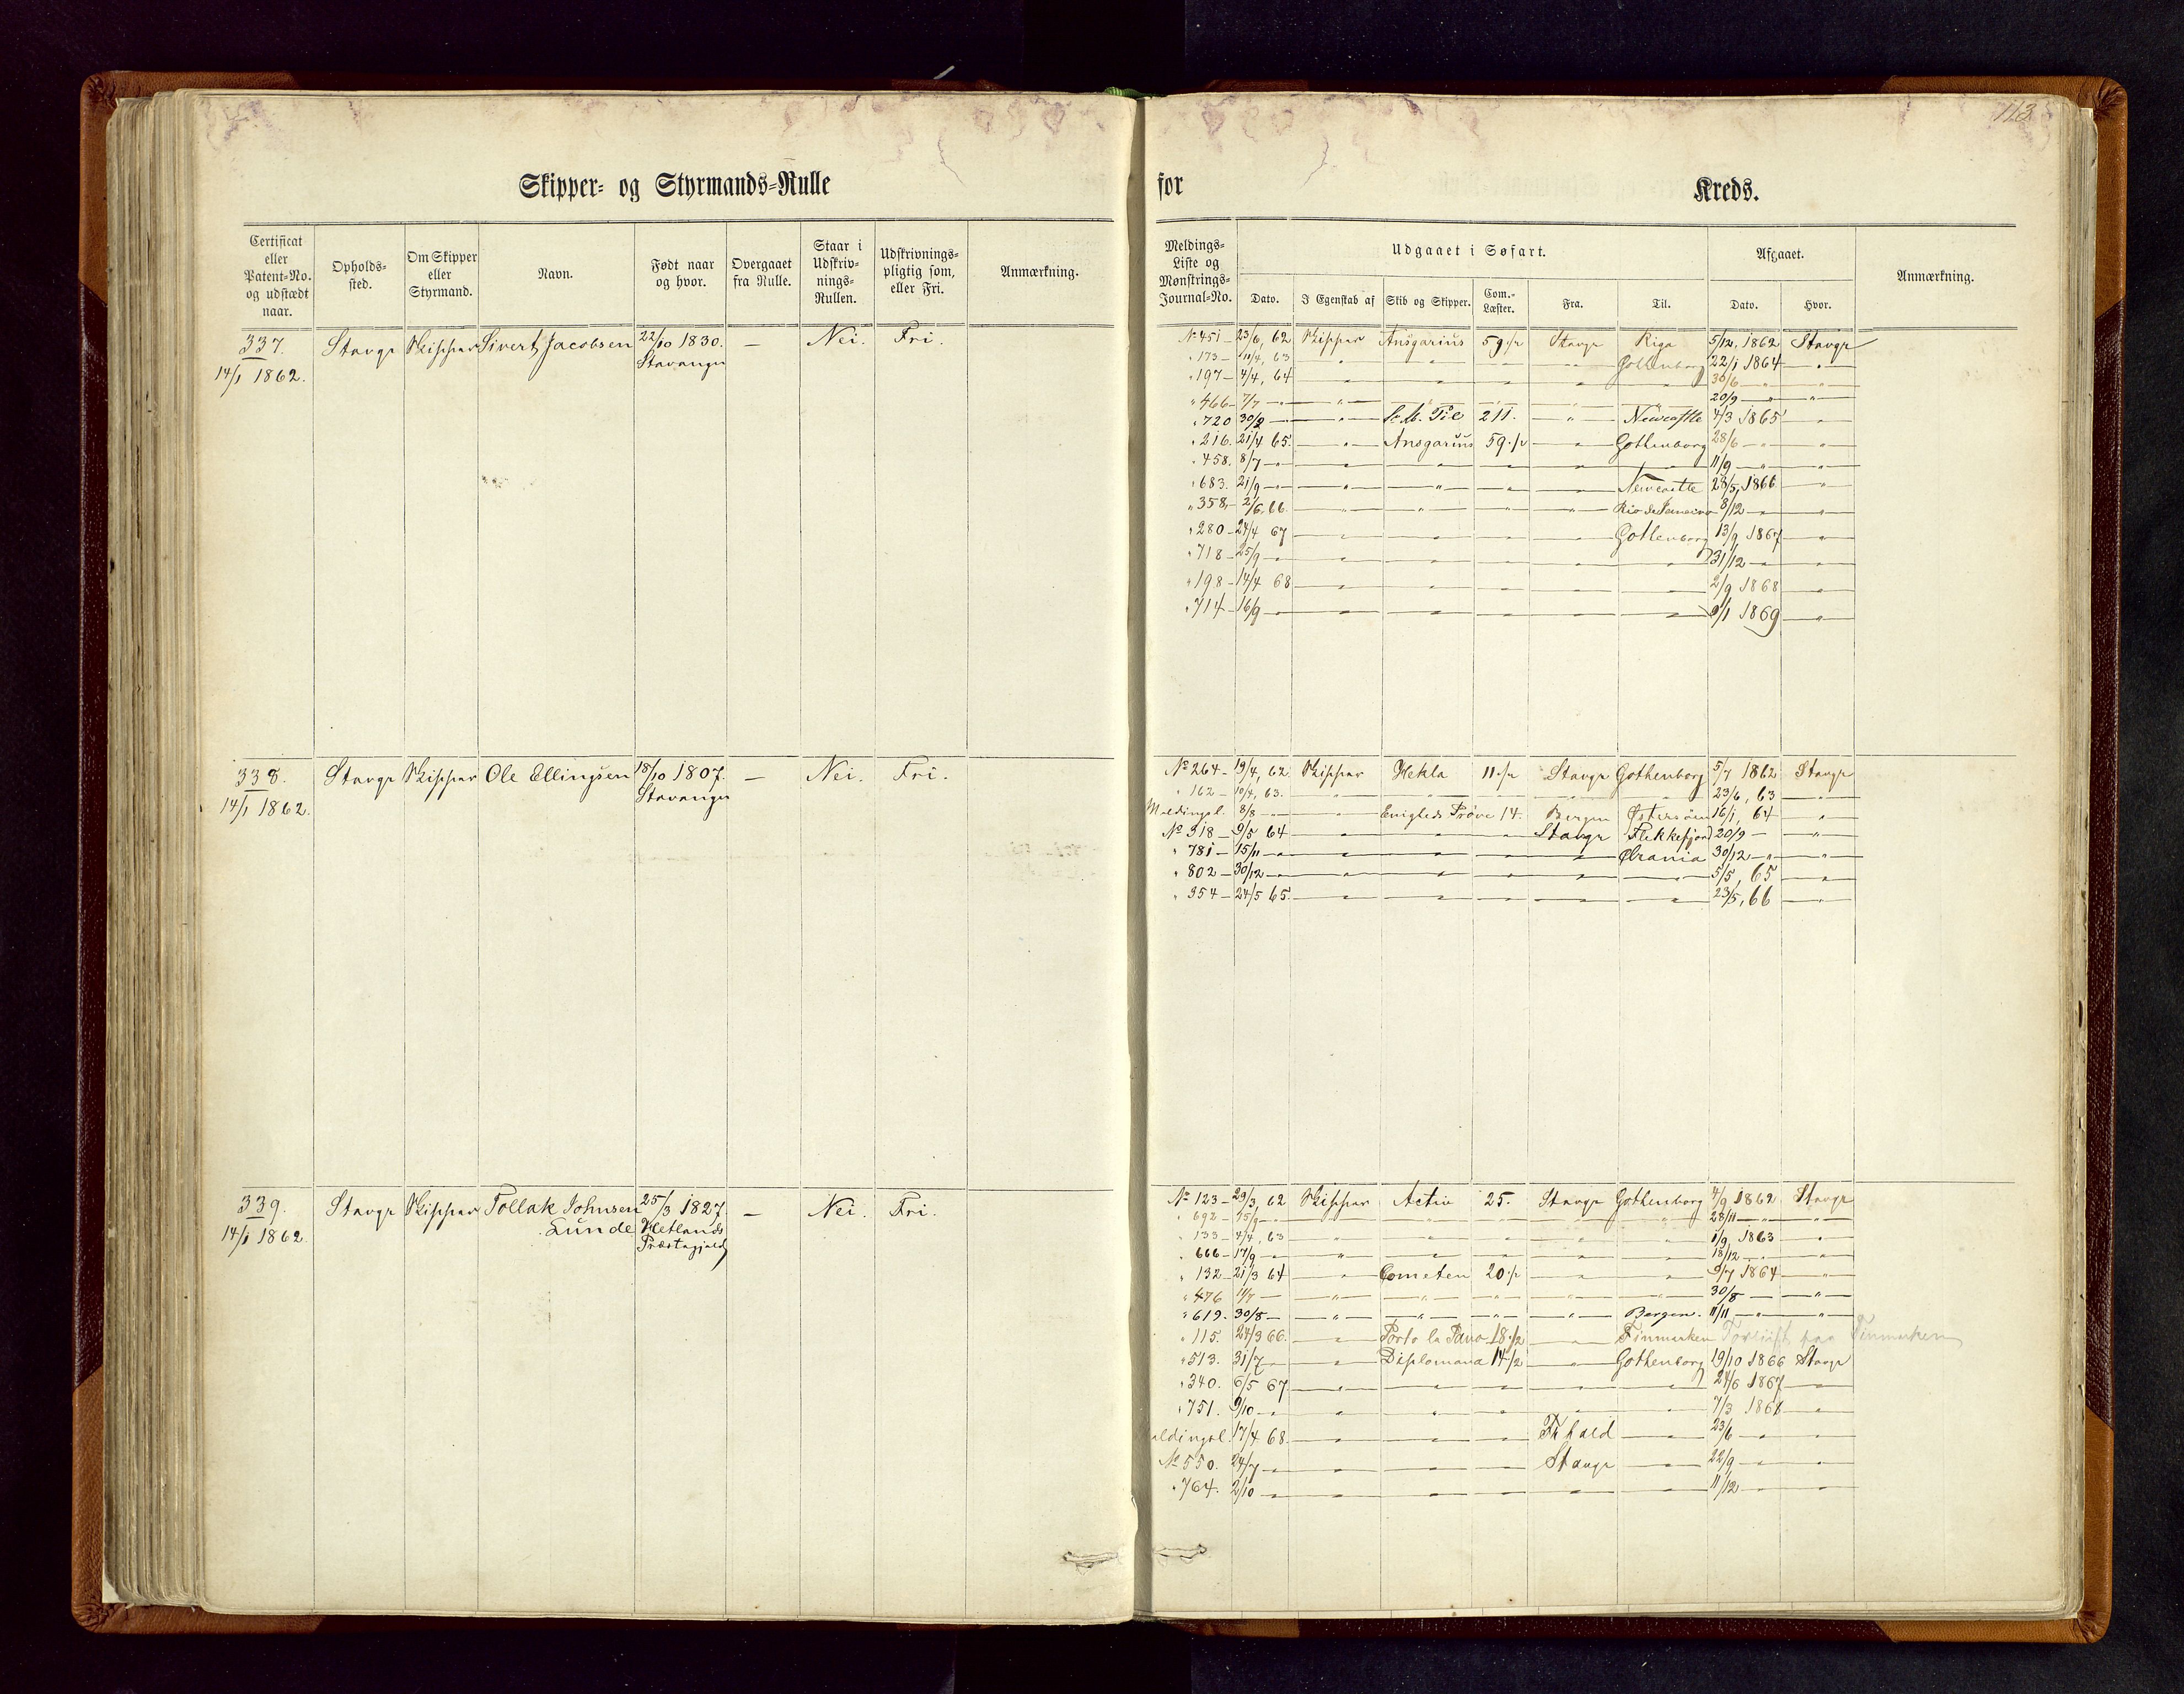 113
Skipper- og Styrmands-Rulle for Kreds.
Certificat eller Patent-No. og udstædt naar. Opholds-sted. Om Skipper eller Styrmand. Navn. Født naar og hvor. Overgaaet fra Rulle. Staar i Udskriv-nings-Rullen. Udskrivnings-pligtig som, eller Fri. Anmærkning.
Meldings-Liste og Mønstrings-Journal-No. Udgaaet i Søfart. Afgaaet. Anmærkning.
Dato. I Egenskab af Skib og Skipper. Com.-Læster. Fra. Til. Dato. Hvor.
337. Stavgr Skipper Sivert Jacobsen 22/10 1830. — Nei. Fri.
14/1 1862. Stavanger
No 451 – 23/6, 62 Skipper Ansgarius 59 ½ Stavgr Riga 5/12, 1862 Stavgr
" 173 – 11/4, 63 " " " " Gothenborg 22/1 1864 "
" 197 – 4/4, 64 " " " " " 30/6 " "
" 466 – 7/7 " " " " " " 20/9 " "
" 720 30/9 " " S. M. Pie 211. " Newcastle 4/3 1865 "
" 216. 21/4 65. " Ansgarius 59 ½ " Gothenborg 28/6 " "
" 458. 8/7 " " " " " " 11/9 " "
" 683. 21/9 " " " " " Newcastle 28/5, 1866 "
" 358, – 2/6, 66. " " " " Rio de Janeiro 8/12 " "
" 280 – 24/4 67 " " " " Gothenborg 13/9 1867 "
" 718 – 25/9 " " " " " " 31/12 " "
" 198 – 14/4 68 " " " " " 2/9 1868 "
" 714 – 16/9 " " " " " " 9/1 1869 "
338. Stavgr Skipper Ole Ellingsen 18/10 1807. — Nei. Fri.
14/1 1862. Stavanger
No 264 – 19/4, 62. Skipper Hekla 11 ½ Stavgr Gothenborg 5/7 1862 Stavgr
" 162 – 10/4, 63. " " " " " 23/6, 63 "
Meldingsl. 8/8 " " Enigheds Prøve 14. Bergen Østersøen 16/1, 64 "
No 318 – 9/5 64 " " " Stavgr Flekkefjord 20/9 – "
" 781 – 15/11 " " " " " Chrania 30/12 " "
" 802 – 30/12 " " " " " " 5/5, 65 "
" 354 – 24/5 65. " " " " " 23/5, 66 "
339. Stavgr Skipper Tollak Johnsen 25/3 1827. — Nei. Fri.
14/1 1862. Lunde Hetlands
Præstegjeld
No 123 – 29/3, 62 Skipper Activ 25. Stavgr Gothenborg 4/9 1862 Stavgr
" 692 – 15/9 " " " " " " 28/11 " "
" 133 – 4/4, 63 " " " " " 1/9, 1863 "
" 666 – 17/9 " " " " " " 18/12 " "
" 132 – 21/3 64 " Cometen 20 ½ " " 9/7 1864 "
" 476 – " " " " " " 30/8 – "
" 619. 30/8 – " " " " Bergen. 11/11 " "
" 115. 24/3 66. " 18 ½ " Finmarken Forliist paa Finmarken
" 513. 31/7 " " Diplomana 14 ½ " Gothenborg 19/10 1866 Stavgr
" 340. 6/5 67 " " " " " 24/6 1867 "
" 751. 9/10 " " " " " " 7/3 1868 "
eldingsl. 17/4 68. " " " Fr.hald " 23/6 " "
No 550. 24/7 " " " " Stavgr " 22/9 " "
" 764. 2/10 " " " " " " 11/12 " "